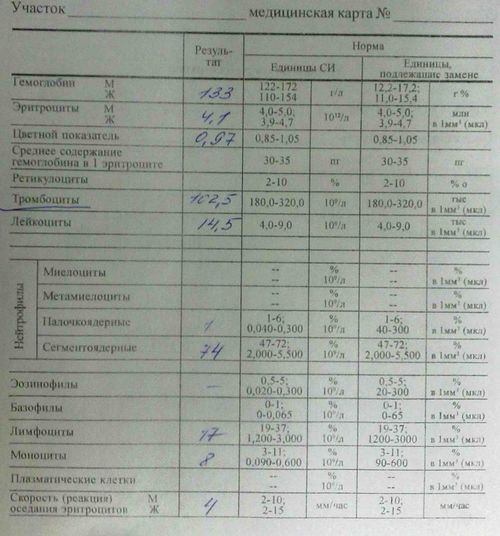 Участок медицинская карта №
Резуль-
тат
Норма
Единицы СИ
Единицы,
подлежащие замене
Гемоглобин М
Ж
133
122-172
110-154
г/л
12,2-17,2;
11,0-15,4
г %
Эритроциты М
Ж
4,1
4,0-5,0;
3,9-4,7
10¹²/л
4,0-5,0;
3,9-4,7
млн
в 1мм³ (мкл)
Цветной показатель 0,97 0,85-1,05 0,85-1,05
Среднее содержание
гемоглобина в 1 эритроците
30-35 пг 30-35 пг
Ретикулоциты 2-10 % 2-10 % о
Тромбоциты 102,5 180,0-320,0 10⁹/л 180,0-320,0 тыс
в 1мм³ (мкл)
Лейкоциты 14,5 4,0-9,0 10⁹/л 4,0-9,0 тыс
в 1мм³ (мкл)
Нейтрофилы
Миелоциты -- % -- %
-- 10⁹/л -- в 1мм³ (мкл)
Метамиелоциты -- % -- %
-- 10⁹/л -- в 1мм³ (мкл)
Палочкоядерные 1 1-6; % 1-6; %
0,040-0,300 10⁹/л 40-300 в 1мм³ (мкл)
Сегментоядерные 74 47-72; % 47-72; %
2,000-5,500 10⁹/л 2,000-5,500 в 1мм³ (мкл)
Эозинофилы – 0,5-5; % 0,5-5; %
0,020-0,300 10⁹/л 20-300 в 1мм³ (мкл)
Базофилы 0-1; % 0-1; %
0-0,065 10⁹/л 0-65 в 1мм³ (мкл)
Лимфоциты 17 19-37; % 19-37; %
1,200-3,000 10⁹/л 1200-3000 в 1мм³ (мкл)
Моноциты 8 3-11; % 3-11; %
0,090-0,600 10⁹/л 90-600 в 1мм³ (мкл)
Плазматические клетки -- % -- %
-- 10⁹/л -- в 1мм³ (мкл)
Скорость (реакция) М
оседания эритроцитов Ж
4
2-10;
2-15
мм/час
2-10;
2-15
мм/час